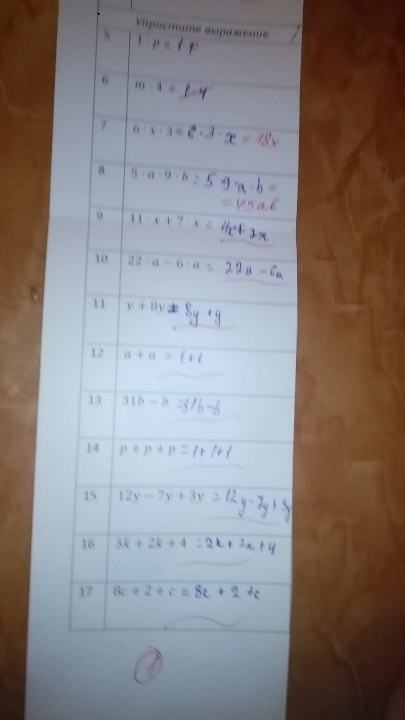 Упростите выражение
5 1 · p = 1 p
6 m · 4 =
7 6 · x · 3 = 6 · 3 · x = 18x
8 5 · a · 9 · b = 5 9 · a · b =
= 45ab
9 11 · x + 7 · x =
10 22 · a − 6 · a = 22a − 6a
11 y + 8y = 8y + y
12 a + a = 1+1
13 31b − b = 31b − b
14 p + p + p = 1+1+1
15 12y − 7y + 3y = 12y − 7y + 3y
16 3k + 2k + 4 =
17 8c + 2 + c = 8c + 2 + c